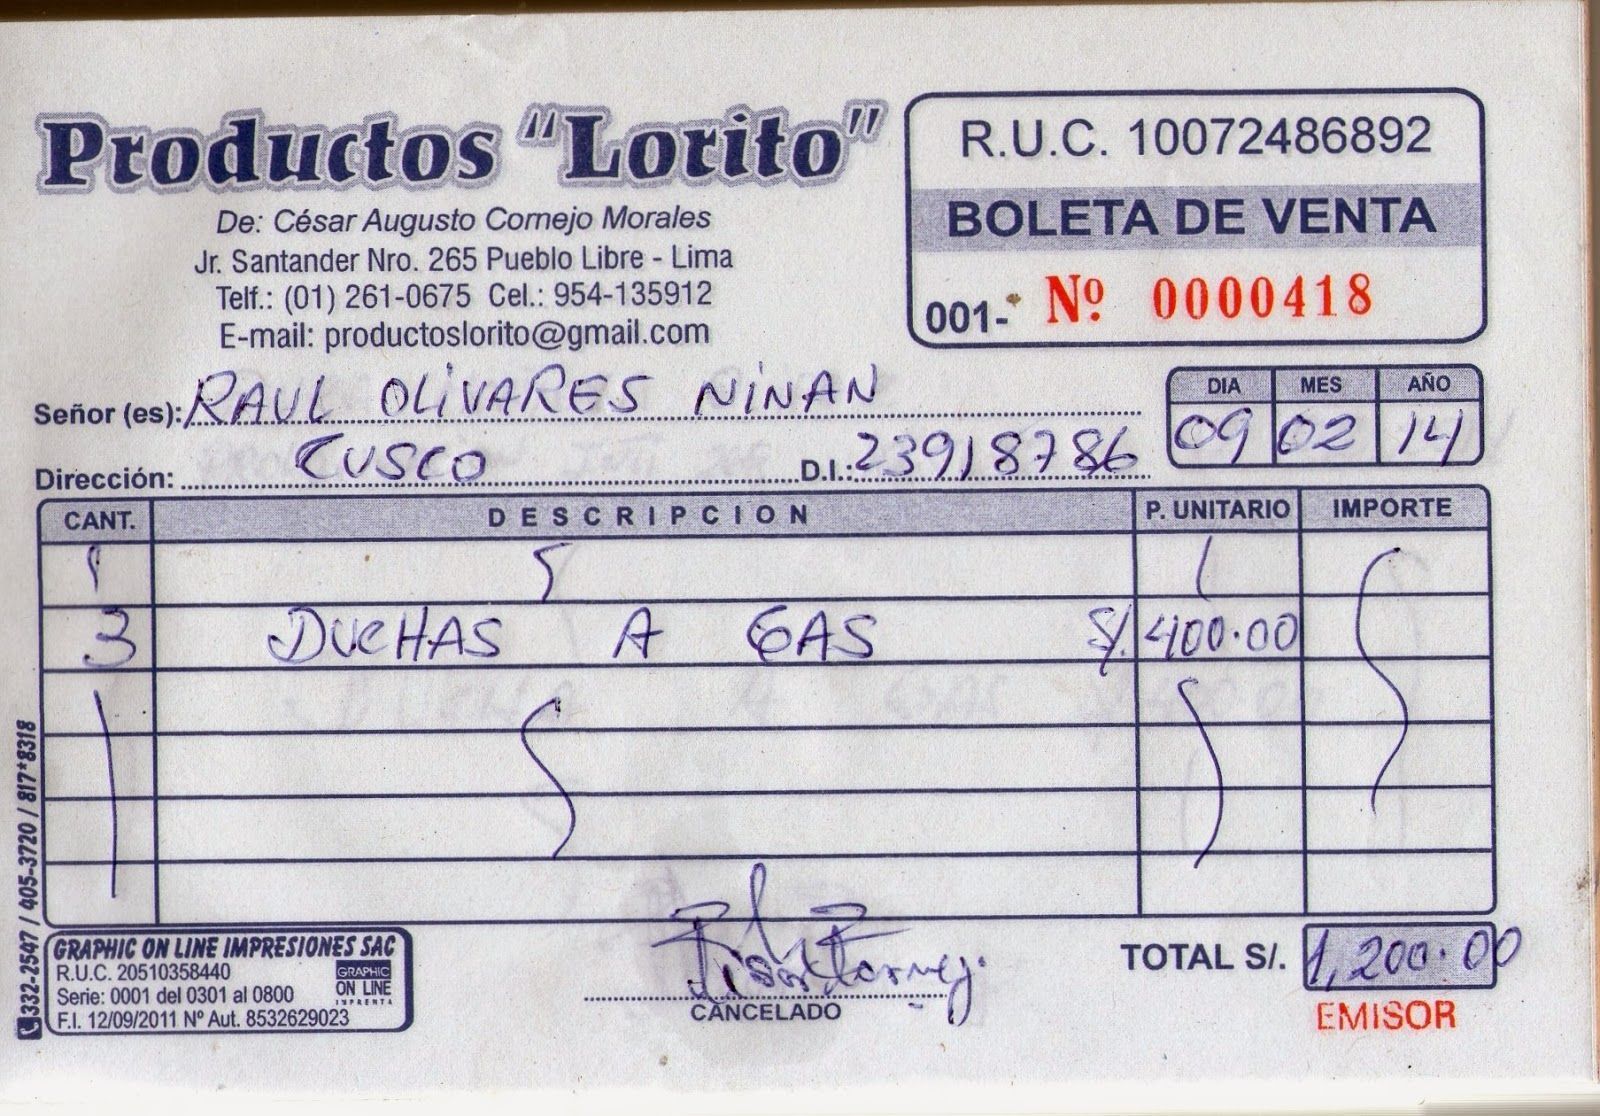 Productos "Lorito"
De: César Augusto Cornejo Morales
Jr. Santander Nro. 265 Pueblo Libre - Lima
Telf.: (01) 261-0675 Cel.: 954-135912
E-mail: productoslorito@gmail.com
R.U.C. 10072486892
BOLETA DE VENTA
001- Nº 0000418
Señor (es): RAUL OLIVARES NINAN
Dirección: CUSCO D.I.: 23918786
DIA MES AÑO
09 02 14
CANT. DESCRIPCION P. UNITARIO IMPORTE
3 DUCHAS A GAS S/. 400.00
CANCELADO
TOTAL S/. 1,200.00
EMISOR
GRAPHIC ON LINE IMPRESIONES SAC
R.U.C. 20510358440
Serie: 0001 del 0301 al 0800
F.I. 12/09/2011 Nº Aut. 8532629023
GRAPHIC
ON LINE
IMPRENTA
332-2547 / 405-3720 / 817*8318